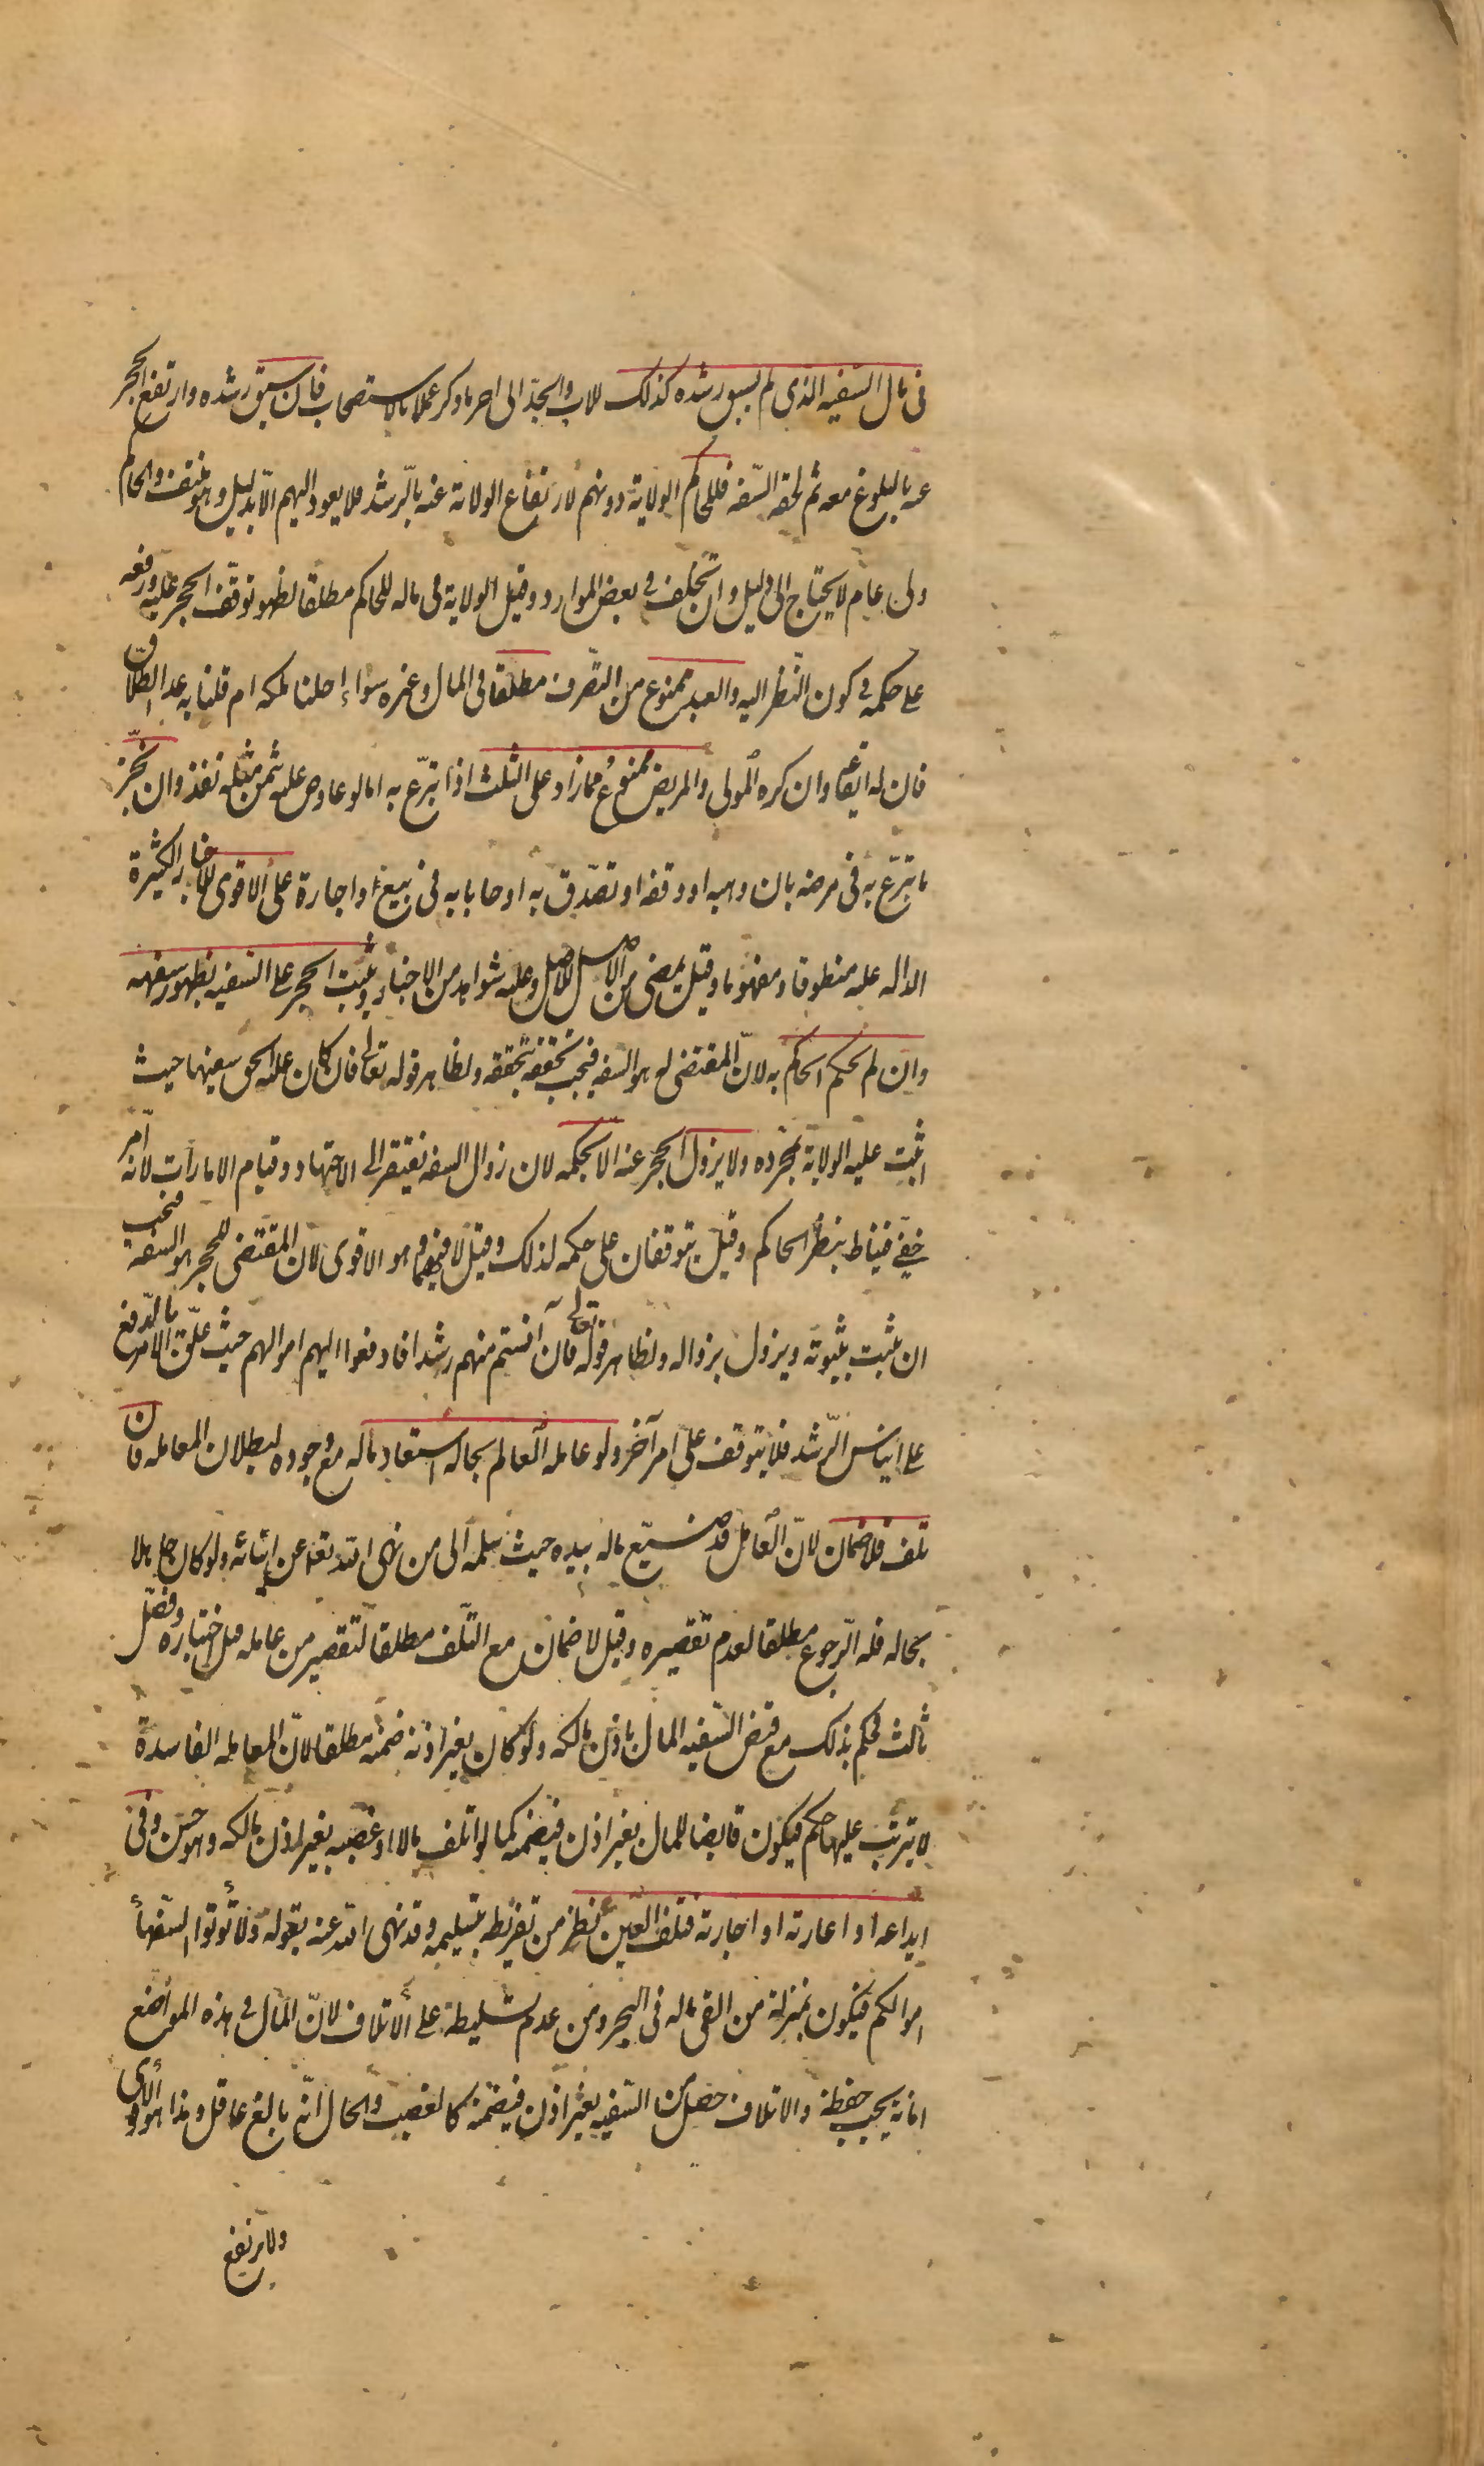 فى مال السّفيه الّذى لم يسبق رشده كذلك للاب والجدّ الى آخر ما ذكر عملا بالاستصحاب فان سبق رشده وارتفع الحجر
عنه بالبلوغ معه ثم لحقه السّفه فللحاكم الولاية دونهم لارتفاع الولاية عنه بالرّشد فلا يعود اليهم الّا بدليل وهو منتف والحاكم
ولى عام لا يحتاج الى دليل وان تخلف فى بعض الموارد وقيل الولاية فى ماله للحاكم مطلقا لظهور توقّف الحجر عليه ورفعه
على حكمه فى كون النّظر اليه والعبد ممنوع من التّصرف مطلقا فى المال وغيره سواء احلنا ملكه ام قلنا به عدا الطّلاق
فان له ايقاعه وان كره المولى والمريض ممنوع ممّا زاد على الثلث اذا تبرّع به امّا لو عاوض عليه بثمن مثله نفذ وان نجّز
ما تبرّع به فى مرضه بان وهبه او وقفه او تصدّق به او حابا به فى بيع او اجارة على الاقوى للاخبار الكثيرة
الدالة عليه منطوقا ومفهوما وقيل يمضى من الاصل للاصل وعليه شواهد من الاخبار ويثبت الحجر على السّفيه بظهور سفهه
وان لم يحكم الحاكم به لانّ المقتضى له هو السفه فيجب تحقّقه بتحققه ولظاهر قوله تعالى فان كان الّذى عليه الحق سفيها حيث
اثبت عليه الولاية بمجرّده ولا يزول الحجر عنه الّا بحكمه لان زوال السفه يفتقر الى الاجتهاد وقيام الامارات لانه امر
خفىّ فيناط بنظر الحاكم وقيل يتوقفان على حكمه لذلك وقيل لا فيهما وهو الاقوى لان المقتضى للحجر هو السفه فيجب
ان يثبت بثبوته ويزول بزواله ولظاهر قوله تعالى فان آنستم منهم رشدا فادفعوا اليهم اموالهم حيث علّق الامر بالدّفع
على ايناس الرّشد فلا يتوقف على امر آخر ولو عامله العالم بحاله استعاد ماله مع وجوده لبطلان المعاملة فان
تلف فلا ضمان لانّ المعامل قد ضيّع ماله بيده حيث سلّمه الى من نهى الله تعالى عن ايتائه ولو كان جاهلا
بحاله فله الرّجوع مطلقا لعدم تقصيره وقيل لا ضمان مع التّلف مطلقا لتقصير من عامله قبل اختباره وفصّل
ثالث فحكم بذلك مع قبض السّفيه المال باذن مالكه ولو كان بغير اذنه ضمنه مطلقا لانّ المعاملة الفاسدة
لا يترتب عليها حكم فيكون قابضا للمال بغير اذن فيضمنه كما لو اتلف مالا او غصبه بغير اذن مالكه وهو حسن وفى
ايداعه او اعارته او اجارته فتلف العين نظر من تفريطه بتسليمه وقد نهى الله عنه بقوله ولا تؤتوا السّفهاء
اموالكم فيكون بمنزلة من القى ماله فى البحر ومن عدم تسليطه على الاتلاف لانّ المال فى هذه المواضع
امانة يجب حفظه والاتلاف حصل من السّفيه بغير اذن فيضمنه كالغصب والحال انّه بالغ عاقل وهذا هو الاقوى
ولا يرتفع